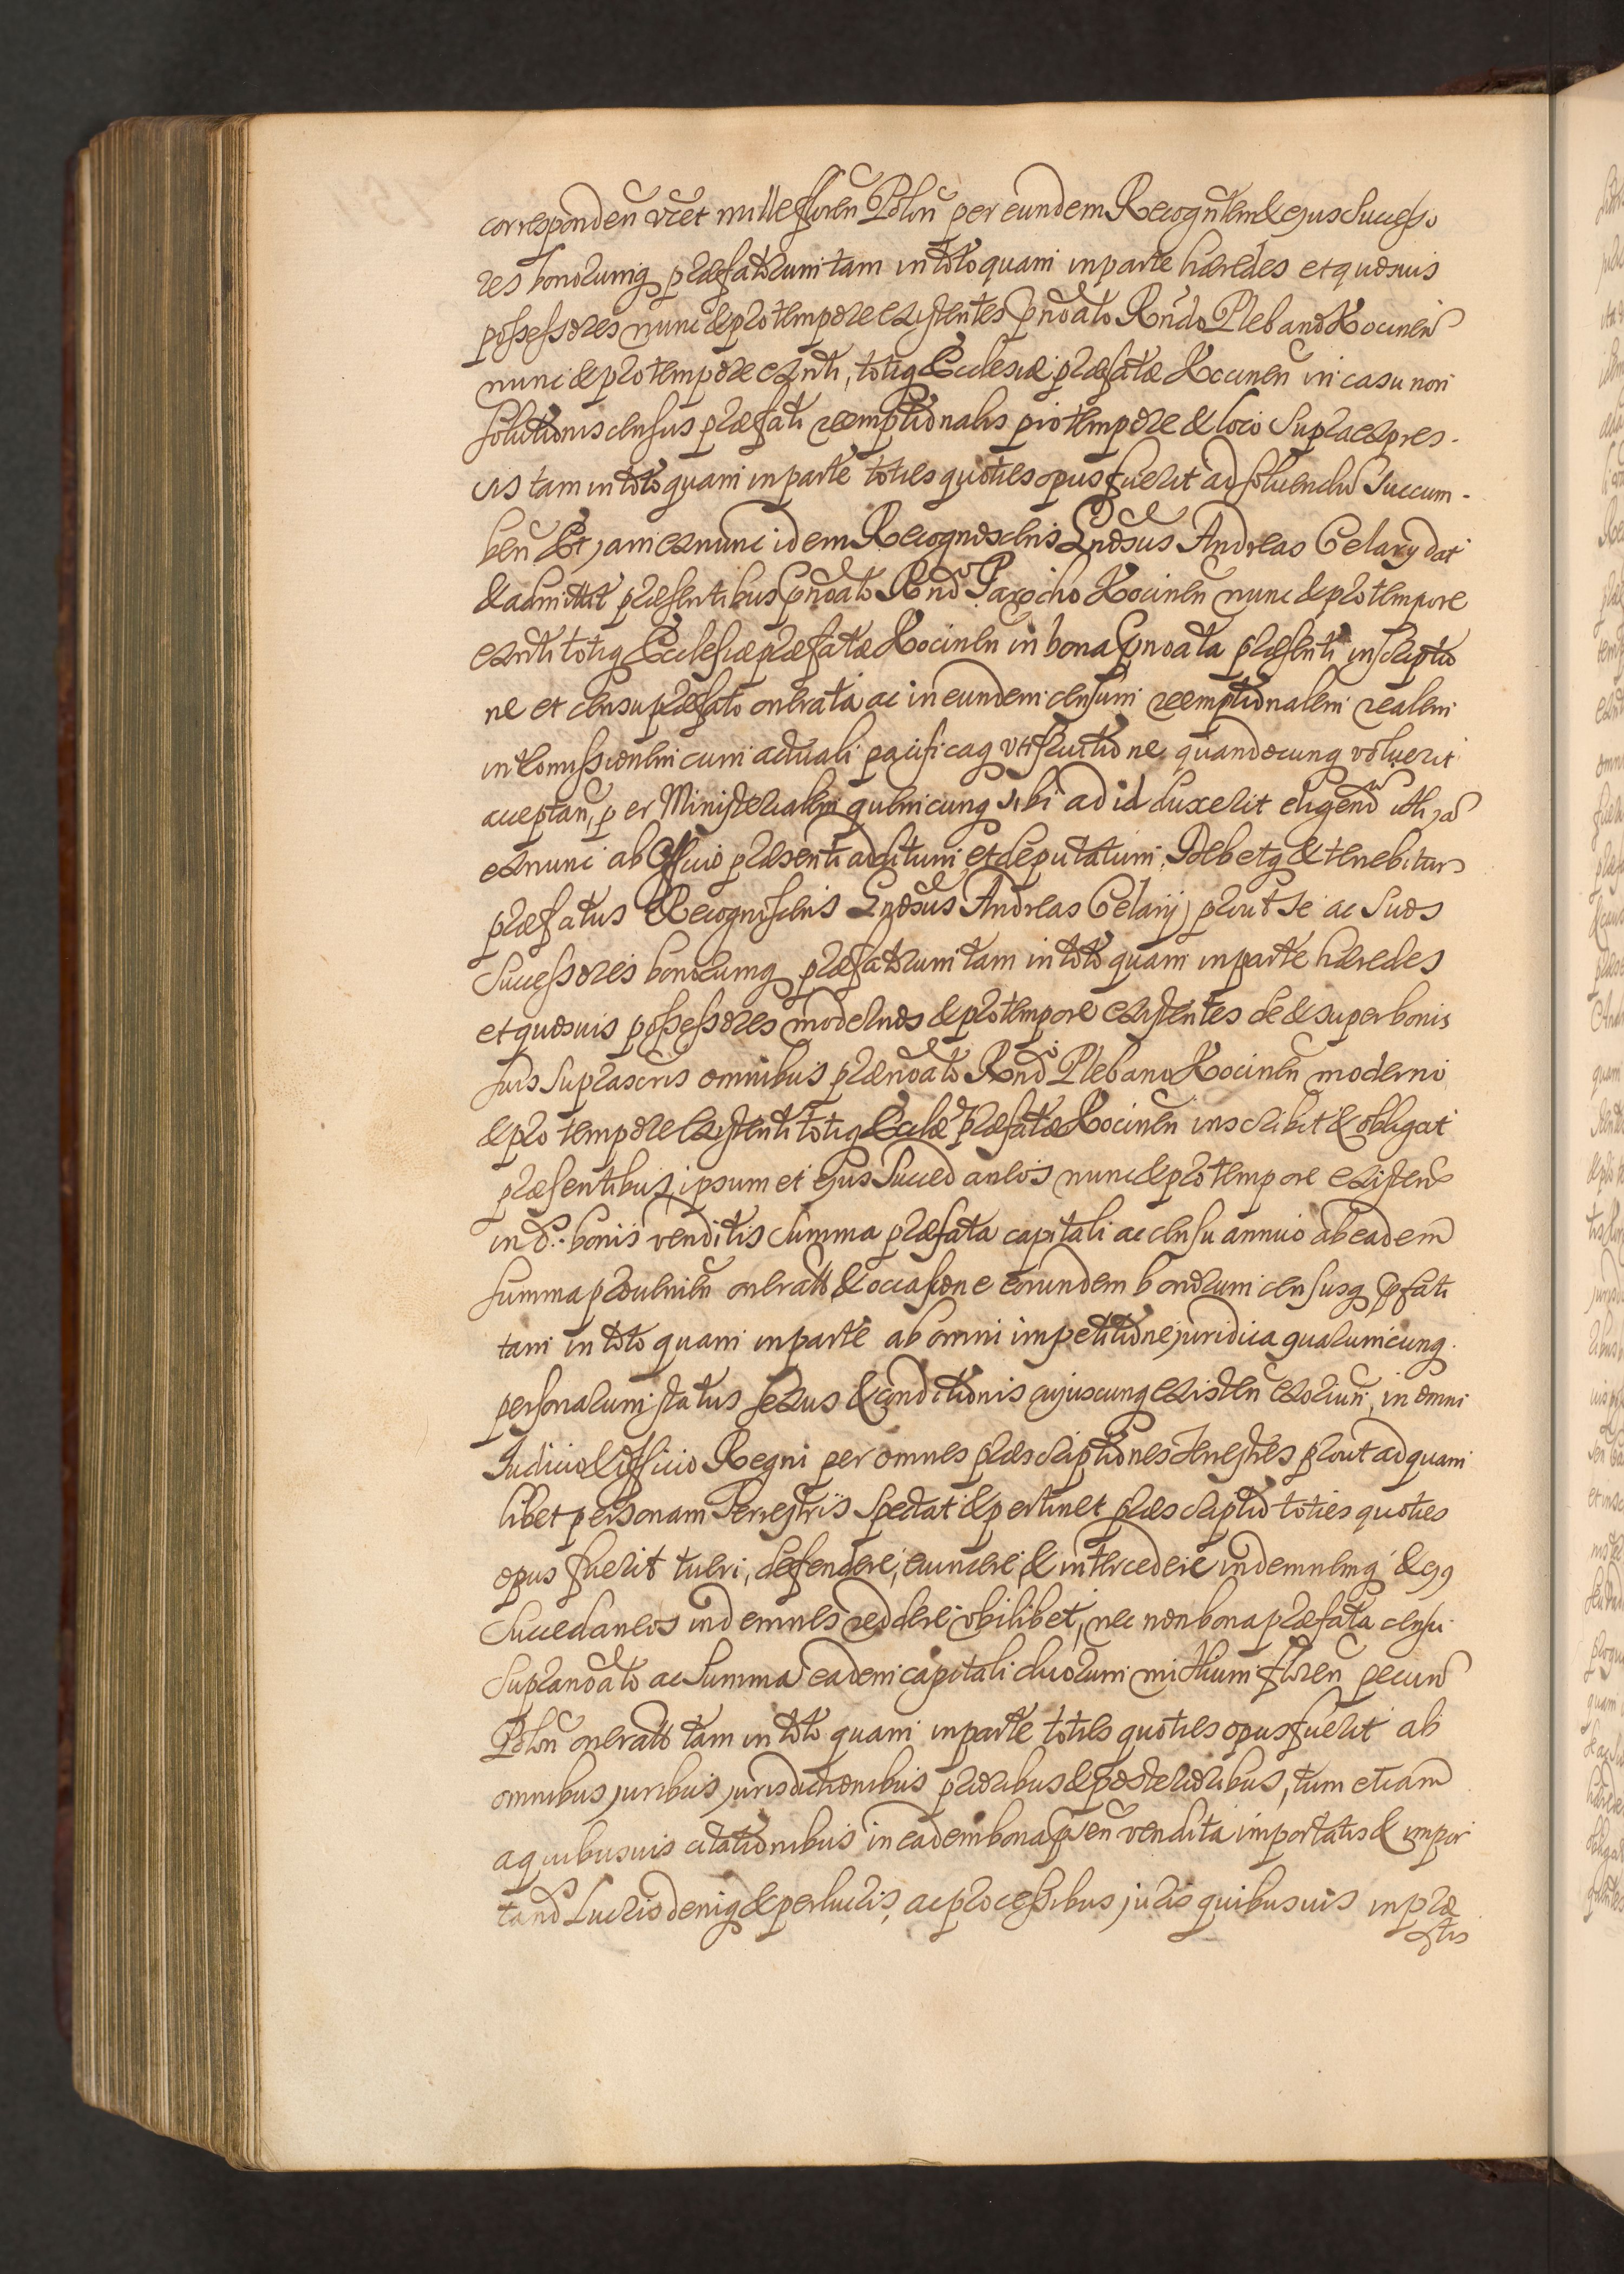 corresponden̄ vc̄et mille floren̄ Polon̄ per eundem Recogn̄tem & ejus Successo
res bonorumq præfatorum tam in toto quam in parte hæredes et quosuis
possessores nunc & pro tempore existentes p̄noāto Rn̄do Plebano Kocinen̄
nunc & pro tempore exn̄ti, totiq Ecclesiæ præfatæ Kocinen̄ in casu non
solutionis census præfati reemptionalis pro tempore & loco supra expres-
sis tam in toto quam in parte toties quoties opus fuerit ad soluendū Succum-
ben̄ Et jam exnunc idem Recognoscens Gn̄osus Andreas Celary dat
& admittit præsentibus p̄noāto Rnd̄o Parocho Kocinen̄ nunc & pro tempore
exn̄ti totiq Ecclesiæ præfatæ Kocinen̄ in bona p̄noāta præsenti inscriptio
ne et censu præfato onerata ac in eundem censum reemptionalem realem
intromissionem cum actuali pacificaq vsufruitione quandocunq voluerit
acceptan̄, per Ministerialem quemcunq sibi ad id duxerit eligend̄ et jā
exnunc ab Officio præsenti additum et deputatum, Debetq & tenebitur
præfatus Recognoscens Gn̄osus Andreas Celarij prout se ac suos
Successores bonorumq præfatorum tam in toto quam in parte hæredes
et quosuis possessores modernos & pro tempore existentes de & super bonis
suis suprascris omnibus prænoāto Rnd̄o Plebano Kocinen̄ moderno
& pro tempore existenti totiq Ecclæ præfatæ Kocinen̄ inscribit & obligat
præsentibus, ipsum et ejus Succedaneos nunc & pro tempore existen̄
in d̄. bonis venditis summa præfata capitali ac censu annuo ab eadem
summa prouenien̄ oneratis & occasione eorundem bonorum censusq p̄fati
tam in toto quam in parte ab omni impetitione juridica quarumcunq
personarum status sexus & conditionis cujuscunq existen̄ exoriun̄, in omni
Judicio & Officio Regni per omnes præscriptiones terrestres prout ad quam
libet personam Terrestris spectat & pertinet præscriptio toties quoties
opus fuerit tueri, defendere, euincere & intercedere indemnemq & ejꝰ
Succedaneos indemnes reddere vbilibet, nec non bona præfata censu
supranoāto ac Summa eadem capitali duorum millium floren̄ pecun̄
Polon̄ oneratis tam in toto quam in parte toties quoties opus fuerit ab
omnibus juribus jurisdictionibus prioribus & posterioribus, tum etiam
a quibusuis citationibus in eadem bona p̄sen̄ vendita importatis & impor
tand̄ Lucris deniq & perlucris, ac processibus juris quibusuis in præ
stis